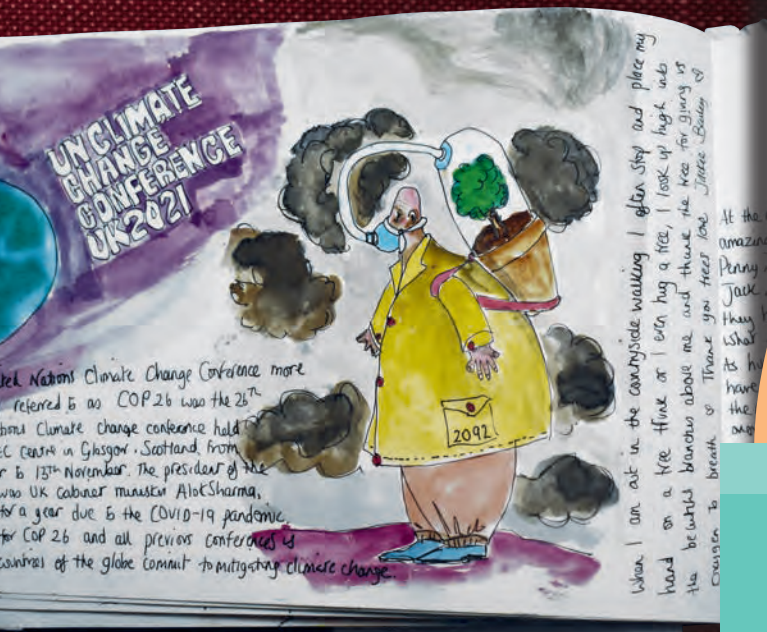 UN CLIMATE
CHANGE
CONFERENCE
UK 2021
Nations Climate Change Conference more
referred to as COP 26 was the 26TH
Climate change conference held
centre in Glasgow, Scotland, from
to 13th November. The president of the
was UK cabinet minister Alok Sharma,
for a year due to the COVID-19 pandemic
for COP 26 and all previous conferences is
of the globe commit to mitigating climate change.
2092
When I am out in the countryside walking I often stop and place my
hand on a tree trunk or I even hug a tree, I look up high into
the beautiful branches above me and thank the tree for giving us
oxygen to breath Thank you trees love Jackie Bailey
At the
Penny
Jack
they
what
As
have
the